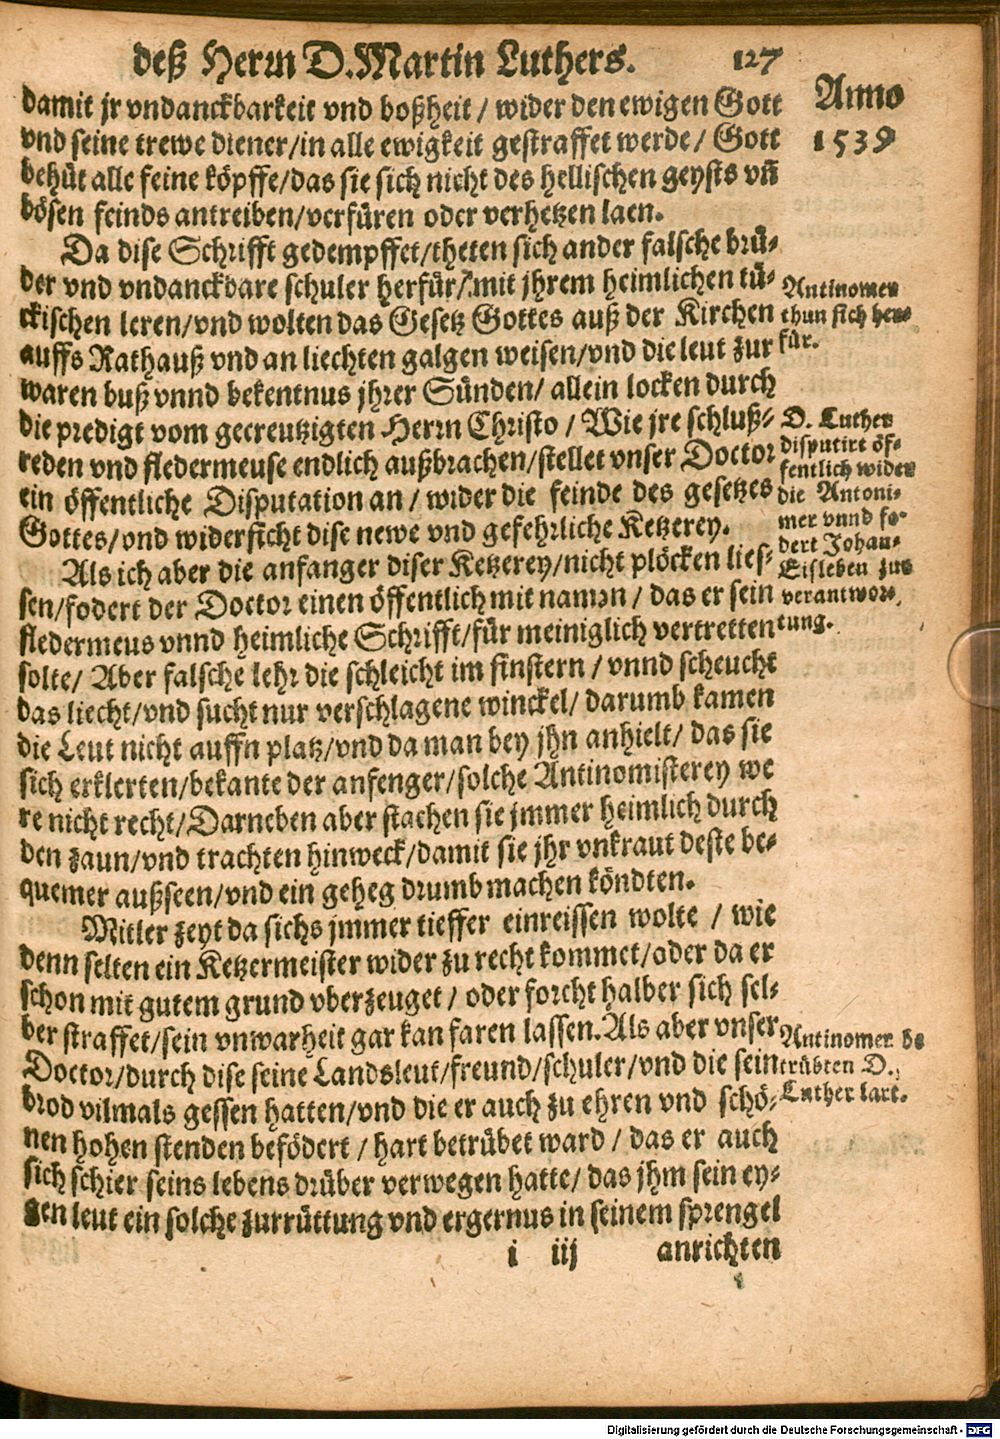 deß Herrn D. Martin Luthers. 127
damit jr vndanckbarkeit vnd boßheit / wider den ewigen Gott
vnd seine trewe diener/in alle ewigkeit gestraffet werde/ Gott
behüt alle feine köpffe/das sie sich nicht des hellischen geysts vñ
bösen feinds antreiben/verfüren oder verhetzen laen.
Da dise Schrifft gedempffet/theten sich ander falsche brü-
der vnd vndanckbare schuler herfür/mit jhrem heimlichen tü-
ckischen leren/vnd wolten das Gesetz Gottes auß der Kirchen
auffs Rathauß vnd an liechten galgen weisen/vnd die leut zur
waren buß vnnd bekentnus jhrer Sünden/ allein locken durch
die predigt vom gecreutzigten Herrn Christo / Wie jre schluß-
reden vnd fledermeuse endlich außbrachen/stellet vnser Doctor
ein öffentliche Disputation an / wider die feinde des gesetzes
Gottes/vnd widersicht dise newe vnd gefehrliche Ketzerey.
Als ich aber die anfanger diser Ketzerey/nicht plöcken lies-
sen/fodert der Doctor einen öffentlich mit namen / das er sein
fledermeus vnnd heimliche Schrifft/für meiniglich vertretten
solte/ Aber falsche lehr die schleicht im finstern / vnnd scheucht
das liecht/vnd sucht nur verschlagene winckel/ darumb kamen
die Leut nicht auffn platz/vnd da man bey jhn anhielt/ das sie
sich erklerten/bekante der anfenger/solche Antinomisterey we
re nicht recht/Darneben aber stachen sie jmmer heimlich durch
den zaun/vnd trachten hinweck/damit sie jhr vnkraut deste be-
quemer außseen/vnd ein geheg drumb machen köndten.
Mitler zeyt da sichs jmmer tieffer einreissen wolte / wie
denn selten ein Ketzermeister wider zu recht kommet/oder da er
schon mit gutem grund vberzeuget / oder forcht halber sich sel-
ber straffet/sein vnwarheit gar kan faren lassen. Als aber vnser
Doctor/durch dise seine Landsleut/freund/schuler/vnd die sein
brod vilmals gessen hatten/vnd die er auch zu ehren vnd schö-
nen hohen stenden befödert / hart betrübet ward / das er auch
sich schier seins lebens drüber verwegen hatte/ das jhm sein ey-
gen leut ein solche zurrüttung vnd ergernus in seinem sprengel
i iij anrichten
Anno
1539
Antinomer
thun sich her-
für.
D. Luther
disputirt öf-
fentlich wider
die Antoni-
mer vnnd fo-
dert Johan-
Eisleben zur
verantwor-
tung.
Antinomer be
trübten D.
Luther hart.
Digitalisierung gefördert durch die Deutsche Forschungsgemeinschaft - DFG